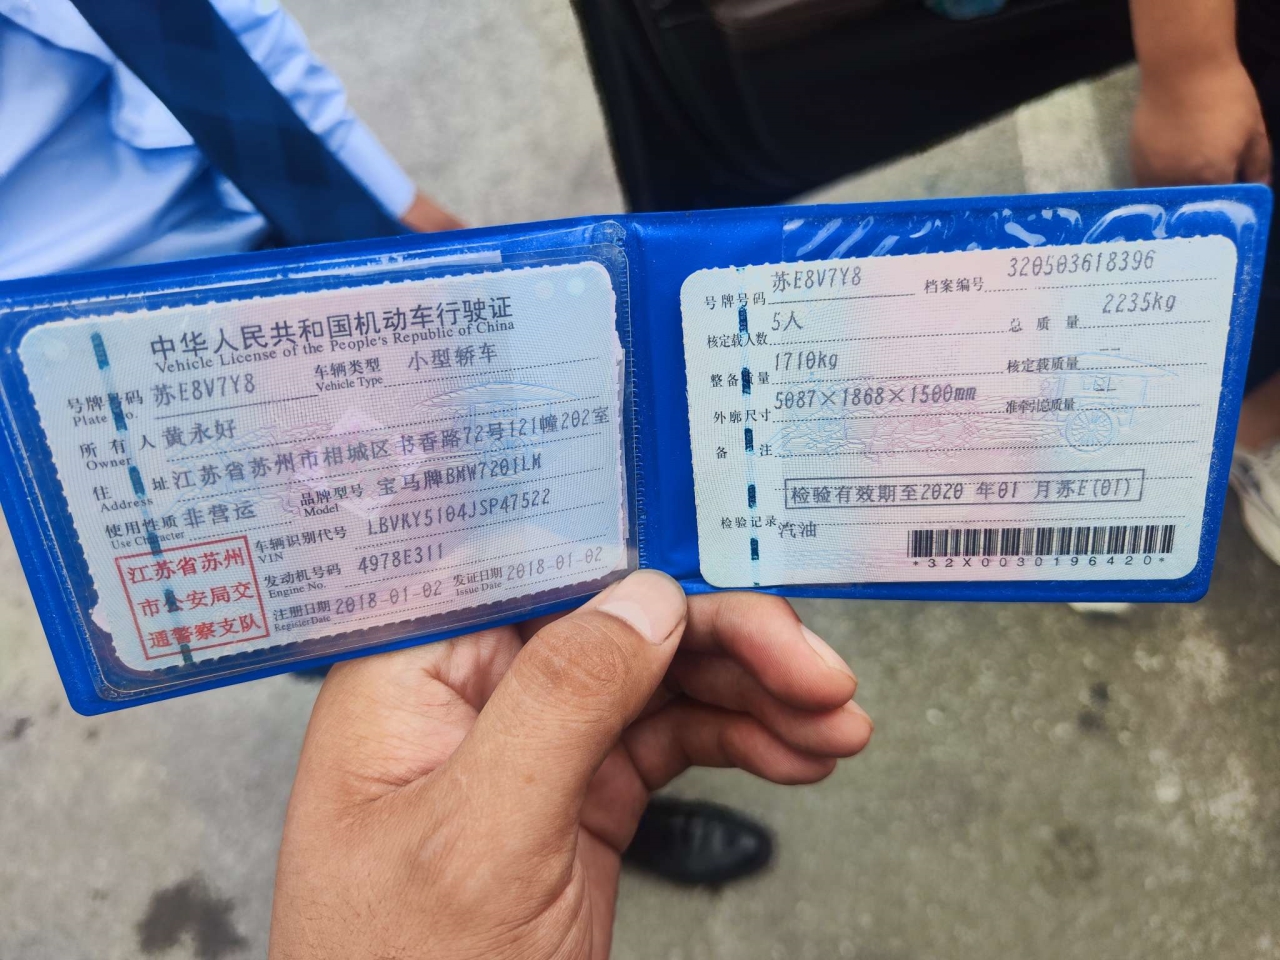 中华人民共和国机动车行驶证
Vehicle License of the People's Republic of China
号牌号码 苏E8V7Y8 车辆类型 小型轿车
Plate No. Vehicle Type
所有人 黄永好
Owner
住址 江苏省苏州市相城区书香路72号121幢202室
Address
使用性质 非营运 品牌型号 宝马牌BMW7201LM
Use Character Model
江苏省苏州
市公安局交
通警察支队
车辆识别代号 LBVKY5104JSP47522
VIN
发动机号码 4978E311
Engine No.
注册日期 2018-01-02 发证日期 2018-01-02
Register Date Issue Date
号牌号码 苏E8V7Y8 档案编号 320503618396
核定载人数 5人 总质量 2235kg
整备质量 1710kg 核定载质量 --
外廓尺寸 5087×1868×1500mm 准牵引总质量
备注
检验有效期至2020 年01 月苏E(01)
检验记录 汽油
*32X0030196420*